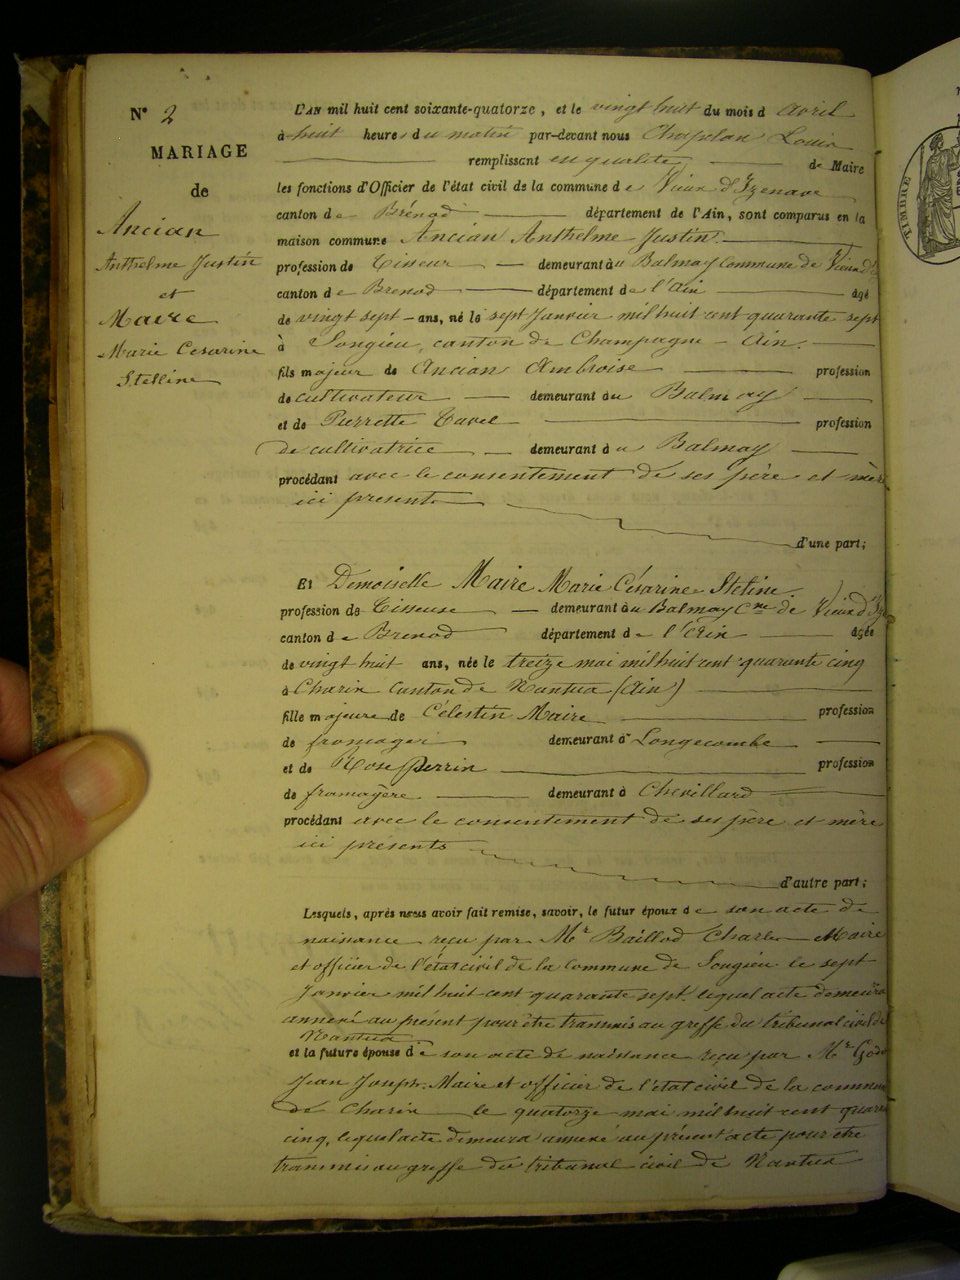 N° 2
MARIAGE
de
Ancian
Anthelme Justin
et
Maire
Marie Cesarine
Stelline
L'AN mil huit cent soixante-quatorze, et le vingt huit du mois d avril
à huit heures du matin par-devant nous Chapelan Louis
remplissant en qualité de Maire
les fonctions d'Officier de l'état civil de la commune de Vieux d'Izenave
canton de Brénod département de l'Ain, sont comparus en la
maison commune Ancian Anthelme Justin.
profession de Tisseur demeurant au Balmay Commune de Vieux d'Iz
canton de Brenod département de l'Ain âgé
de vingt sept ans, né le sept Janvier mil huit cent quarante sept
à Songieu, canton de Champagne - Ain.
fils majeur de Ancian Ambroise profession
de cultivateur demeurant au Balmay
et de Pierrette Tavel profession
de cultivatrice demeurant au Balmay
procédant avec le consentement de ses père et mère
ici présents
d'une part;
Et Demoiselle Maire Marie Césarine Steline.
profession de Tisseuse demeurant au Balmay Cne de Vieux d'Ize
canton de Brenod département de l'Ain âgée
de vingt huit ans, née le treize mai mil huit cent quarante cinq
à Charix canton de Nantua (Ain)
fille majeure de Célestin Maire profession
de fromager demeurant à Longecombe
et de Rose Perrin profession
de fromagère demeurant à Chevillard
procédant avec le consentement de ses père et mère
ici présents
d'autre part;
Lesquels, après nous avoir fait remise, savoir, le futur époux de son acte de
naissance reçu par Mr Baillod Charles Maire
et officier de l'état civil de la commune de Songieu le sept
Janvier mil huit cent quarante sept lequel acte demeura
annexé au présent pour être transmis au greffe du tribunal civil de
Nantua.
et la future épouse de son acte de naissance reçu par Mr
Jean Joseph. Maire et officier de l'état civil de la commune
de Charix le quatorze mai mil huit cent quara
cinq, lequel acte demeura annexé au présent acte pour être
transmis au greffe du tribunal civil de Nantua
TIMBRE